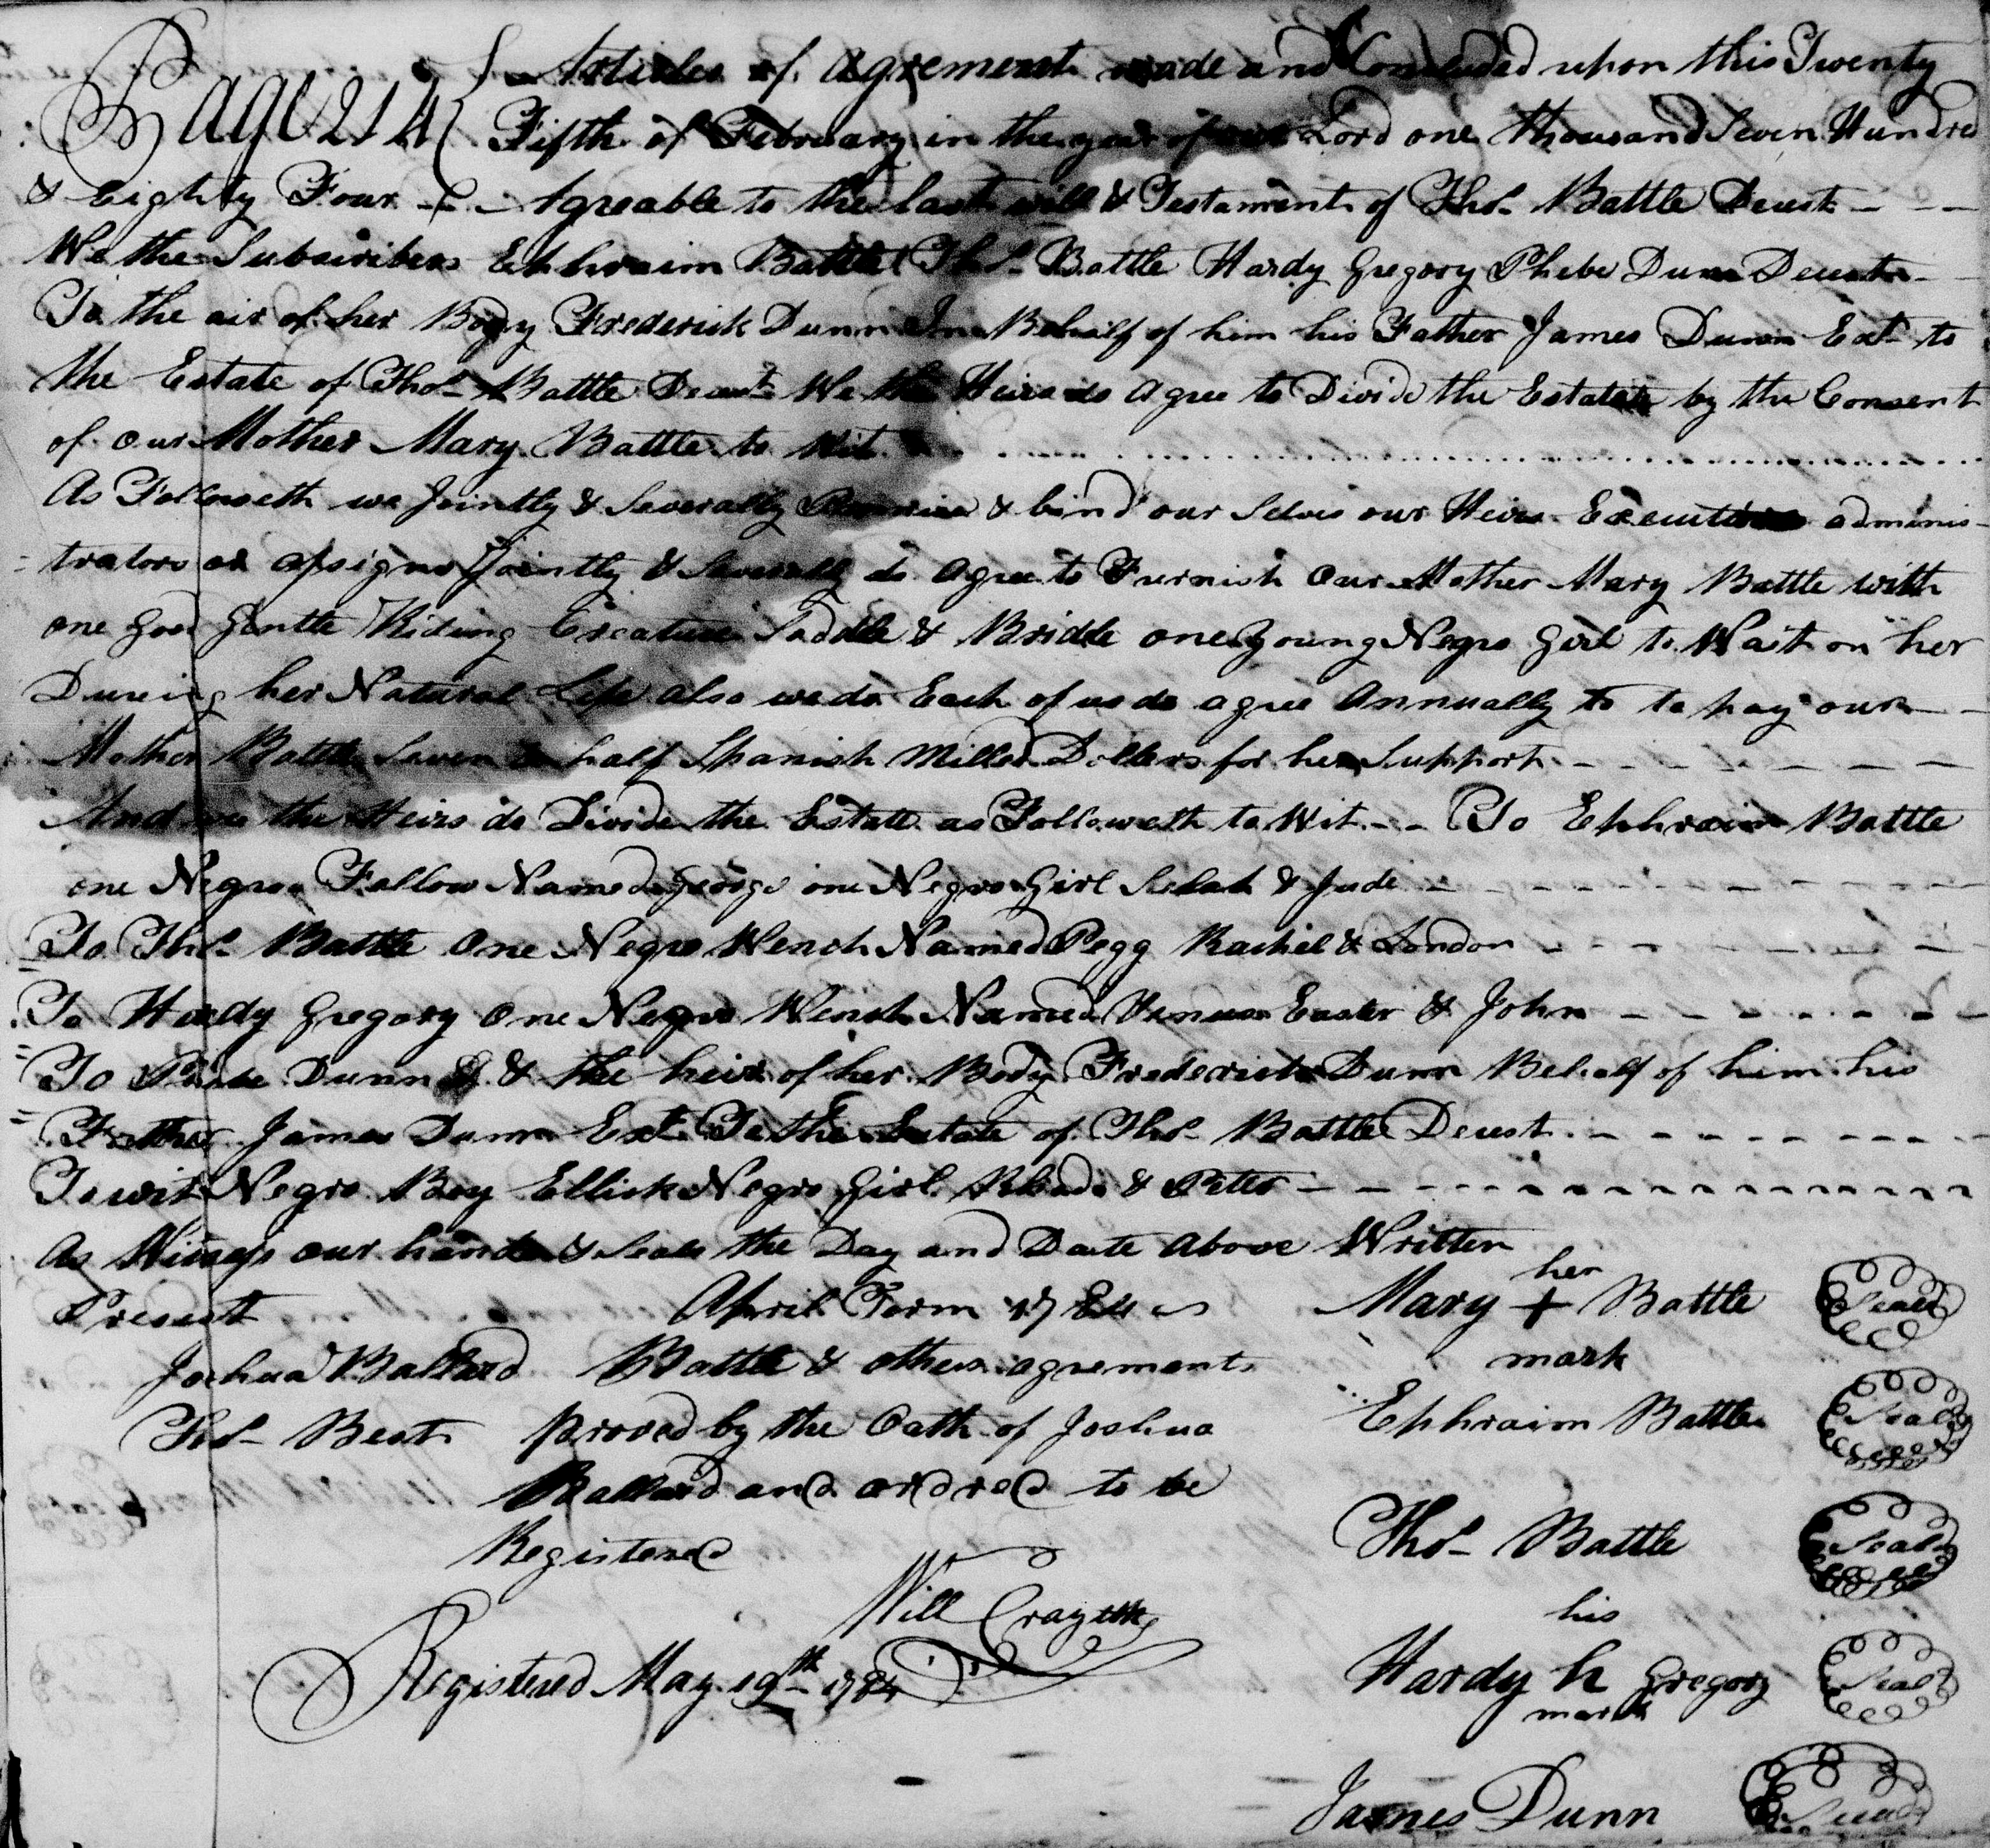 Page 214 { Articles of Agrement made and Concluded upon this Twenty
Fifth of February in the year of our Lord one thousand Seven Hundred
& Eighty Four - Agreable to the last will & Testament of Thos. Battle Decest
We the Subscribers Ephraim Battle Thos. Battle Hardy Gregory Phebe Dunn Decest
To the air of her Body Frederick Dunn In Behalf of him his Father James Dunn Ext. to
the Estate of Thos. Battle Decest We the Heirs do agree to Divide the Estate by the Consent
of our Mother Mary Battle to Wit
As Followeth we Jointly & Severally & bind our Selves our Heirs Executors adminis-
trators or assigns Jointly & Severally do agree to Furnish Our Mother Mary Battle with
one good gentle Riding Creature Saddle & Bridle one young Negro Girl to Wait on her
Dureing her Natural Life also we do Each of us do agree Annually to to pay our
Mother Battle Seven & half Spanish Milled Dollers for her Support
And we the Heirs do Divide the Estate as Followeth to Wit - - To Ephraim Battle
one Negro Fellow Named George one Negro Girl Selah & Jude
To Thos. Battle One Negro Wench Named Pegg Rachel & London
To Hardy Gregory One Negro Wench Named Venus Easter & John
To Phebe Dunn & the heir of her Body Frederick Dunn Behalf of him his
Father James Dunn Ext. To the Estate of Thos. Battle Decest
To wit Negro Boy Ellick Negro Girl Rhoda & Peter
As Witness our hands & Seals the Day and Date Above Written
Present
Joshua Ballard
Thos. Best
April Term 1784
Battle & others agrement
proved by the Oath of Joshua
Ballard and ordred to be
Registered
Will Cray
Registered May 19th 1784
her
Mary + Battle Seal
mark
Ephraim Battle Seal
Thos. Battle Seal
his
Hardy h Gregory Seal
mark
James Dunn Seal